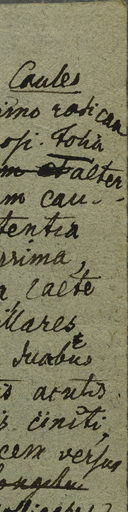 Caules
imo radican
osi. Folia
m et alter
m cau-
tentia
rrima,
a laete
illares
duabus
is acutis
is ciniti,
cem versus
longitu